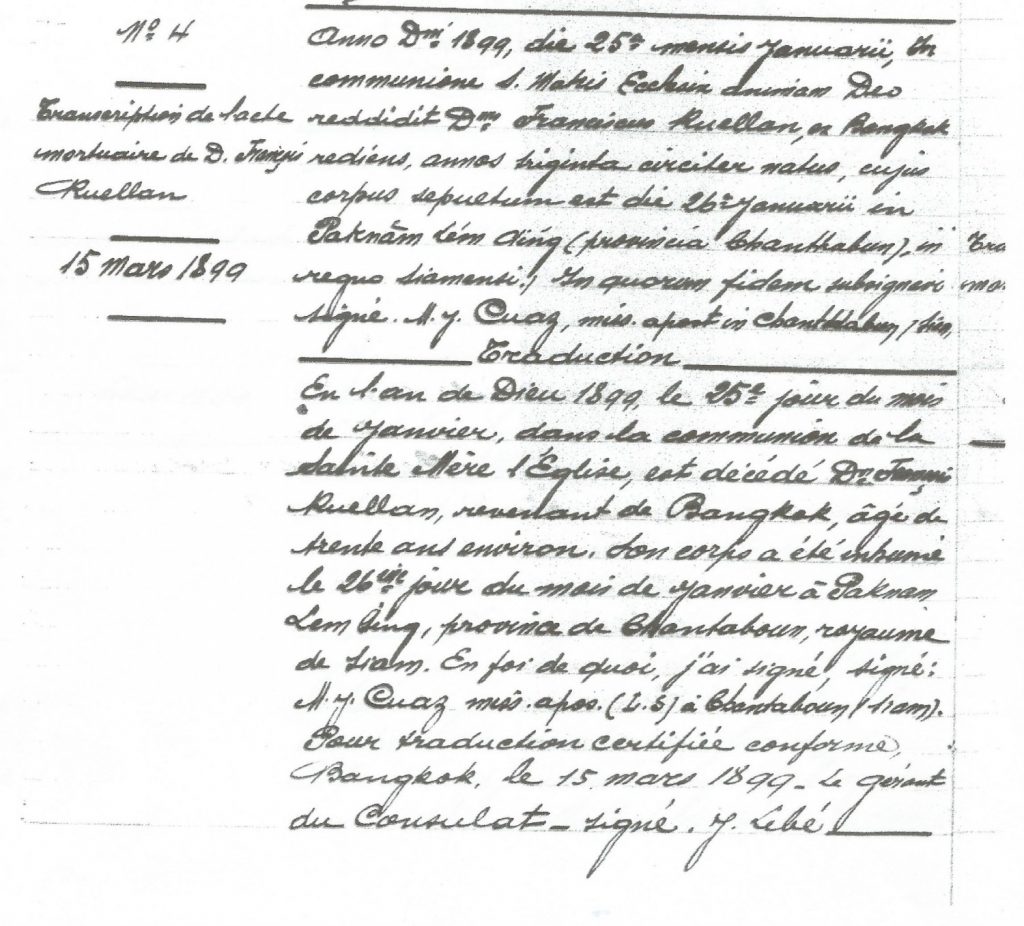 No 4
Transcription de l'acte
mortuaire de D. François
Ruellan
15 Mars 1899
Anno Dni 1899, die 25a mensis Januarii, In
communione S. Matris Ecclesiæ animam Deo
reddidit Dnus Franciscus Ruellan, ex Bangkok
rediens, annos triginta circiter natus, cujus
corpus sepultum est die 26a Januarii in
Paknăm Lém Sing (provincia Chanthabun), in
regno Siamensi; In quorum fidem subsignavi
signé. M. J. Cuaz, miss. apost in Chanthabun (Siam,
Traduction
En l'an de Dieu 1899, le 25e jour du mois
de Janvier, dans la communion de la
Sainte Mère l'Église, est décédé Dn François
Ruellan, revenant de Bangkok, âgé de
trente ans environ. Son corps a été inhumé
le 26me jour du mois de Janvier à Paknam
Lem Sing, province de Chantaboun, royaume
de Siam. En foi de quoi, j'ai signé, signé:
M. J. Cuaz miss. apos. (L. S) à Chantaboun (Siam).
Pour traduction certifiée conforme,
Bangkok, le 15 mars 1899 - Le gérant
du Consulat - signé. J. Lebé
Tra
mor